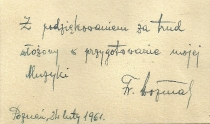 Z podziękowaniem za trud
włożony w przygotowanie mojej
Muzyki
Poznań, 24 luty 1961.